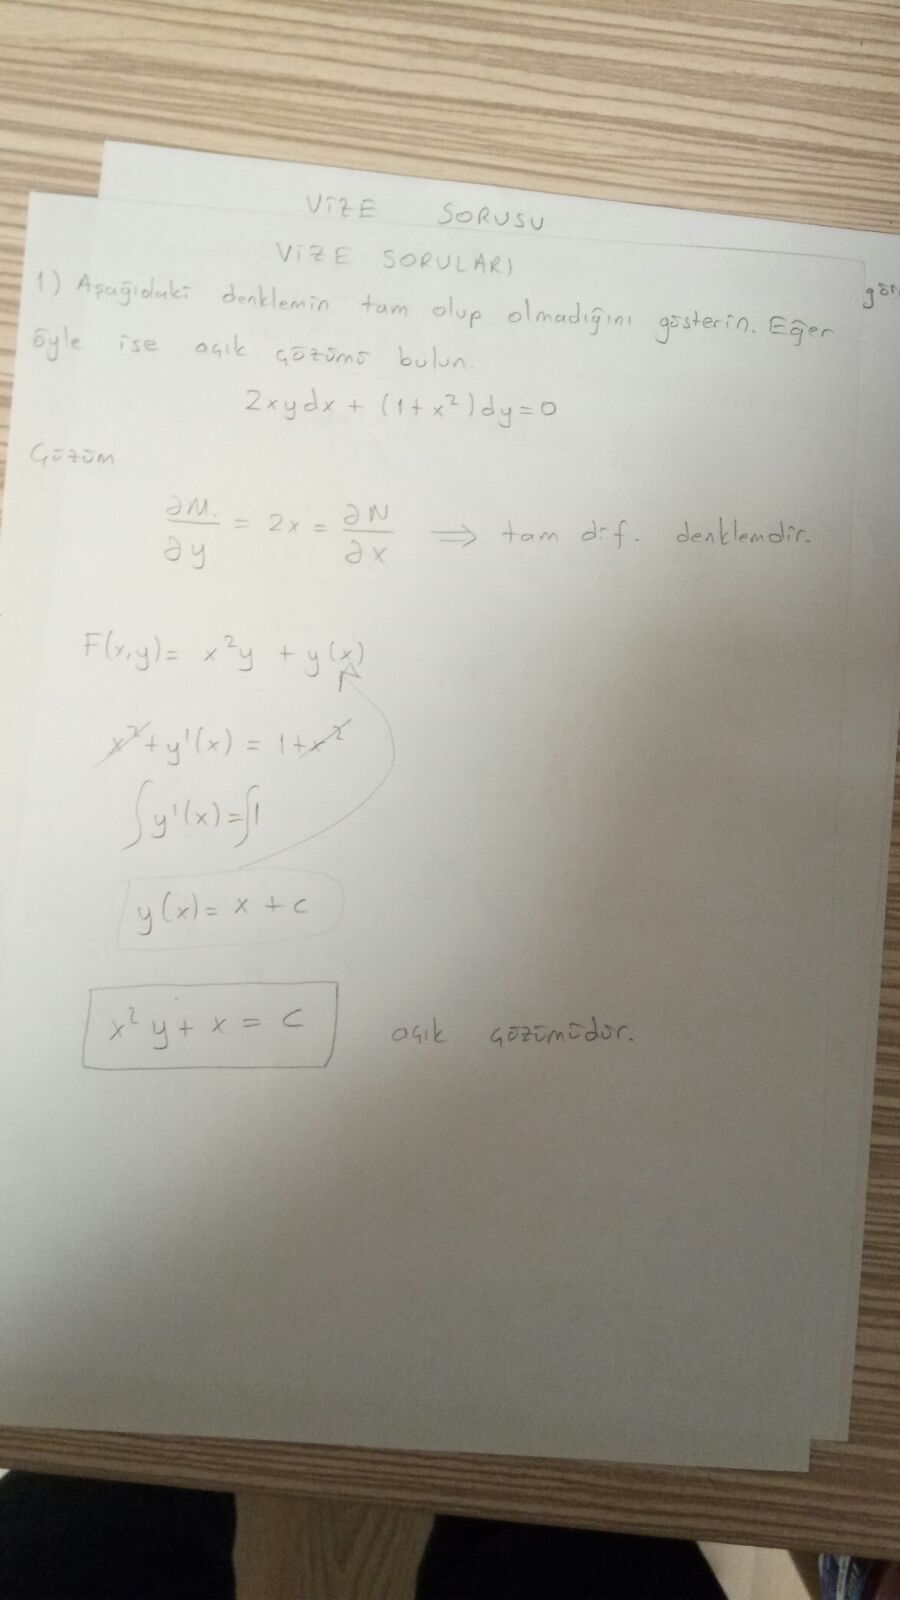 VİZE SORUSU
VİZE SORULARI
1) Aşağıdaki denklemin tam olup olmadığını gösterin. Eğer
öyle ise açık çözümü bulun.
2xydx + (1+x²)dy=0
Çözüm
∂M/∂y = 2x = ∂N/∂x ⟹ tam dif. denklemdir.
F(x,y)= x²y + y(x)
x²+y'(x) = 1+x²
∫y'(x)=∫1
y(x)= x + c
x²y + x = c açık çözümüdür.